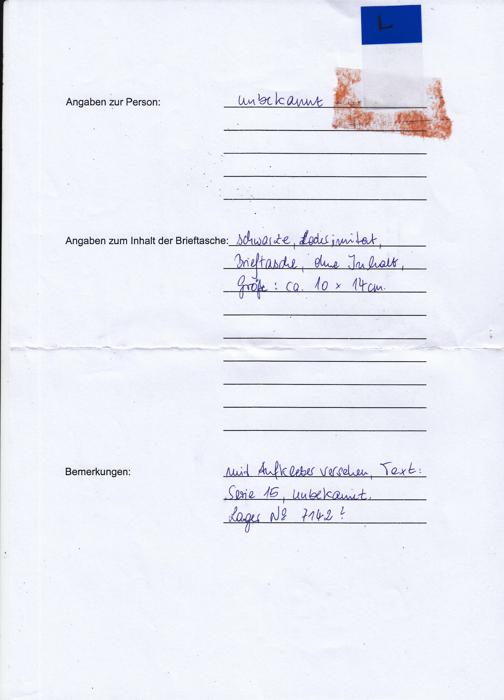 L
Angaben zur Person: unbekannt
Angaben zum Inhalt der Brieftasche: schwarze, Lederimitat,
Brieftasche, ohne Inhalt,
Größe: ca. 10 x 14 cm.
Bemerkungen: mit Aufkleber versehen, Text:
Serie 15, unbekannt.
Lager No 7142?